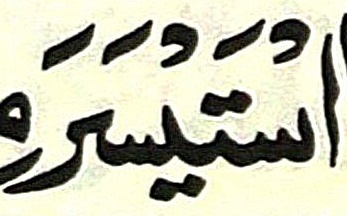 اسْتَيْسَرَ